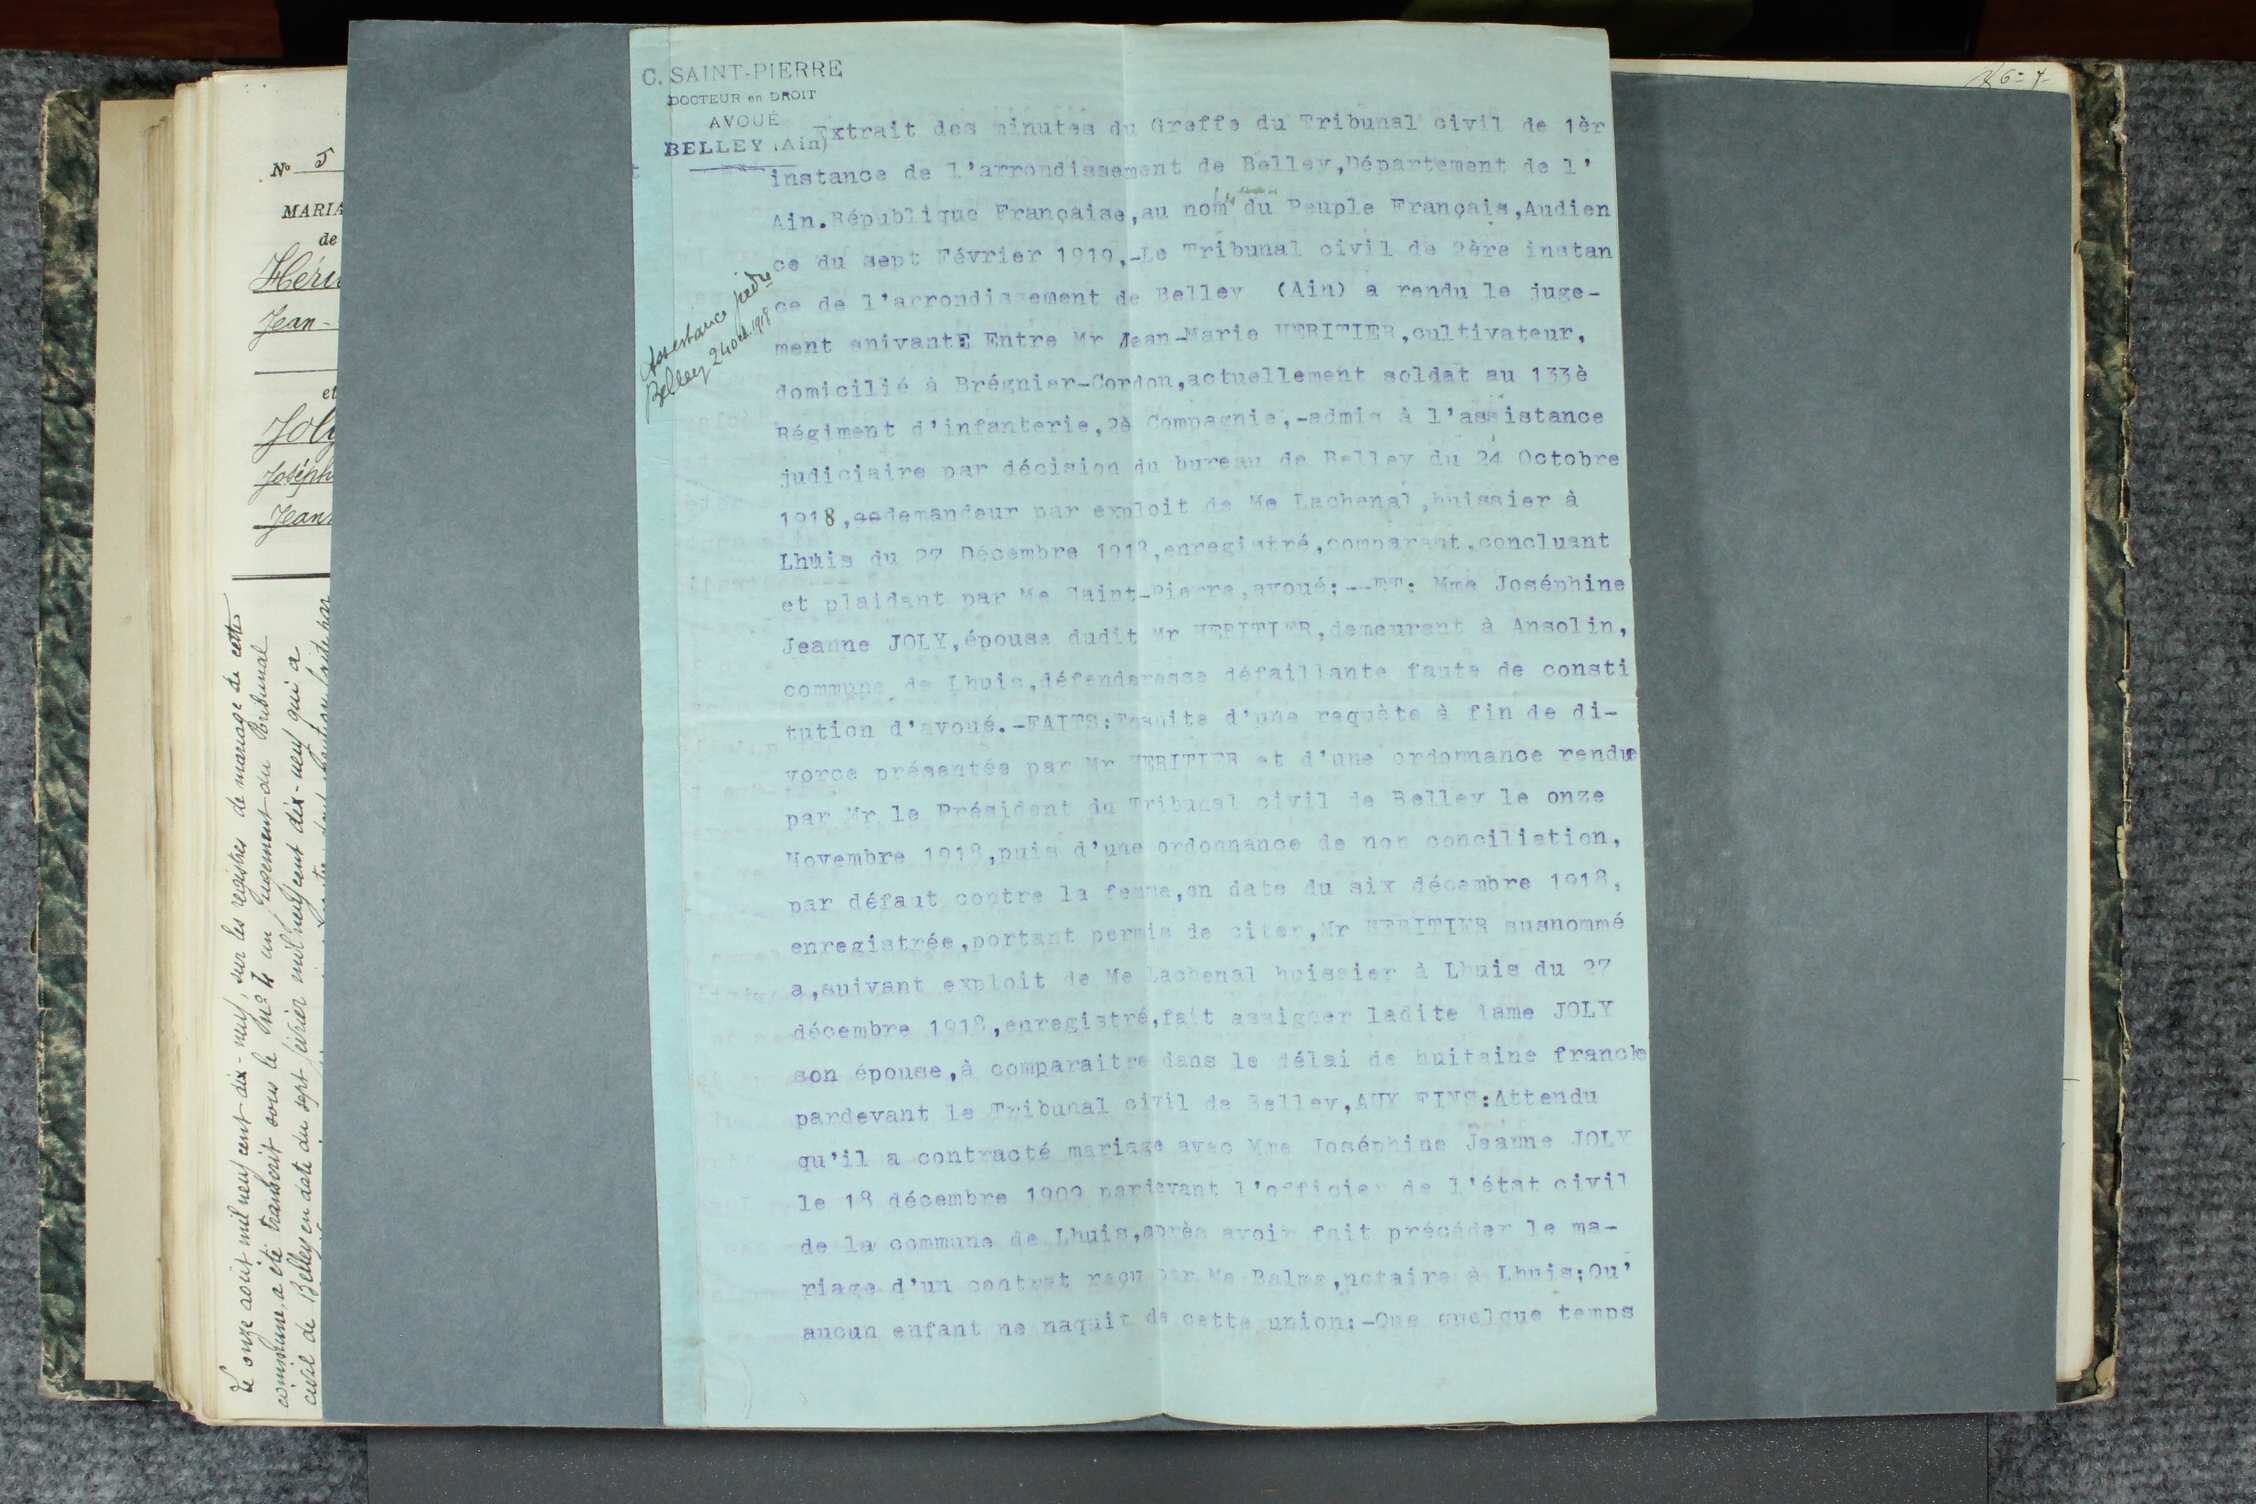 86=7-
N° 5
MARIA
de
Héri
Jean-
et
Joly
Joséph
Jean
Le onze août mil neuf cent dix-neuf, sur les registres de mariage de cette
commune, a été transcrit sous le N° 4 un Jugement du Tribunal
civil de Belley en date du sept février mil neuf cent dix-neuf qui a
C. SAINT-PIERRE
DOCTEUR en DROIT
AVOUÉ
BELLEY (Ain)
Assistance judre
Belley 24 oct. 1918
Extrait des minutes du Greffe du Tribunal civil de 1èr
instance de l'arrondissement de Belley,Département de l'
Ain.République Française,au nom du Peuple Français,Audien
ce du sept Février 1919,-Le Tribunal civil de 2ère instan
ce de l'arrondissement de Belley (Ain) a rendu le juge-
ment snivantE Entre Mr Jean-Marie HERITIER,cultivateur,
domicilié à Brégnier-Cordon,actuellement soldat au 133è
Régiment d'infanterie,2è Compagnie,-admis à l'assistance
judiciaire par décision du bureau de Belley du 24 Octobre
1918,dedemandeur par exploit de Me Lachenal,huissier à
Lhuis du 27 Décembre 1918,enregistré,comparant,concluant
et plaidant par Me Saint-Pierre,avoué:--ET: Mme Joséphine
Jeanne JOLY,épouse dudit Mr HERITIER,demeurant à Ansolin,
commune de Lhuis,défenderesse défaillante faute de consti
tution d'avoué.-FAITS:Ensuite d'une requète à fin de di-
vorce présentée par Mr HERITIER et d'une ordonnance rendue
par Mr le Président du Tribunal civil de Belley le onze
Novembre 1918,puis d'une ordonnance de non conciliation,
par défaut contre la femme,en date du six décembre 1918,
enregistrée,portant permis de citer,Mr HERITIER susnommé
a,suivant exploit de Me Lachenal huissier à Lhuis du 27
décembre 1918,enregistré,fait assigner ladite dame JOLY
son épouse,à comparaitre dans le délai de huitaine franche
pardevant le Tribunal civil de Belley,AUX FINS:Attendu
qu'il a contracté mariage avec Mme Joséphine Jeanne JOLY
le 18 décembre 1909 pardevant l'officier de l'état civil
de la commune de Lhuis,après avoir fait précéder le ma-
riage d'un contrat reçu par Me Balme,notaire à Lhuis;Qu'
aucun enfant ne naquit de cette union:-Que quelque temps